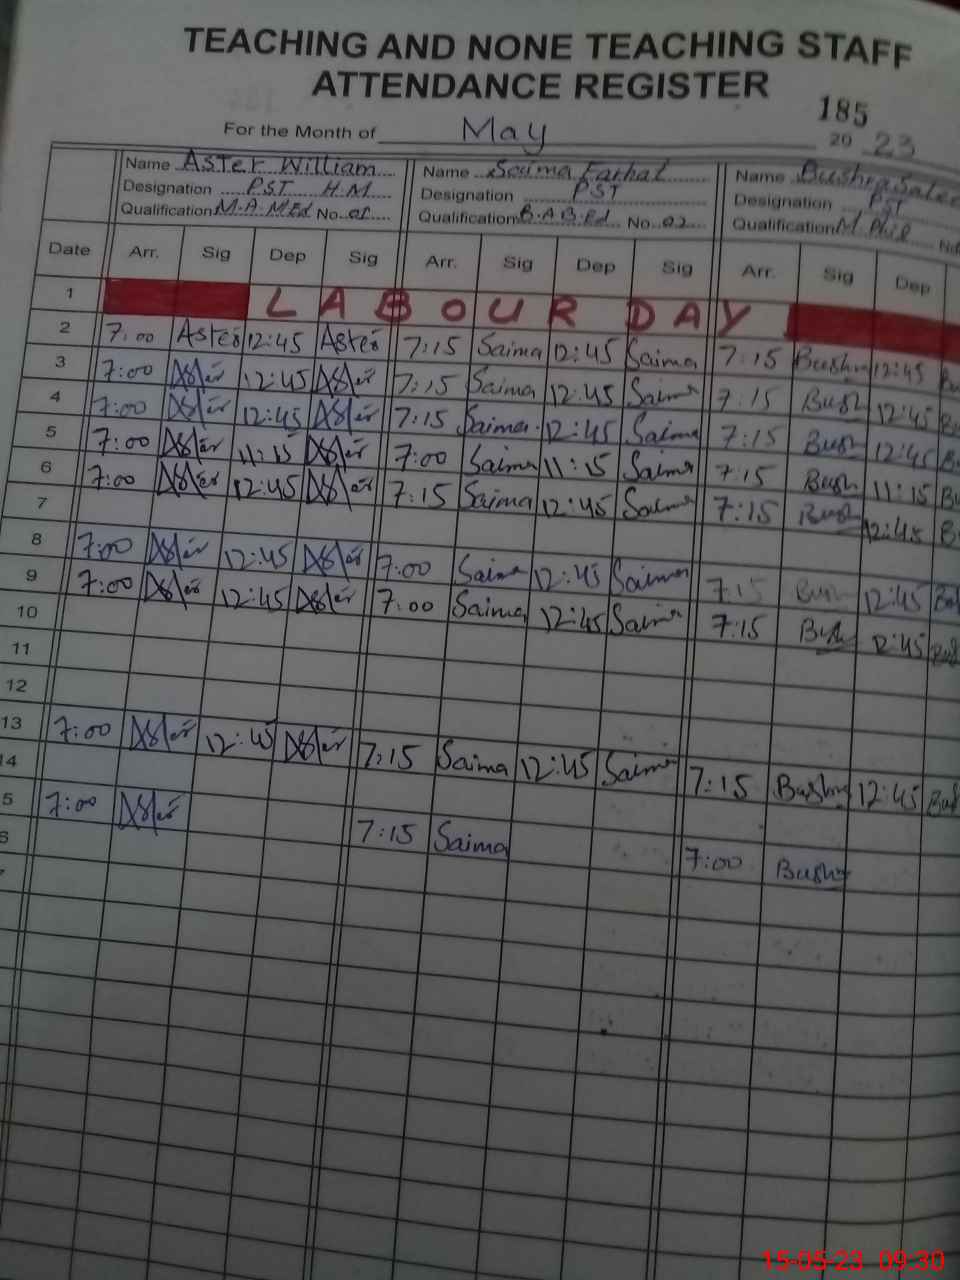 TEACHING AND NONE TEACHING STAFF
ATTENDANCE REGISTER
185
For the Month of May 20 23
Name Aster William Name Saima Farhat Name Bushra
Designation PST H.M Designation PST Designation PST
Qualification M.A.M.Ed No. 01 Qualification B.A B.Ed No. 02 Qualification M.Phil
Date Arr. Sig Dep Sig Arr. Sig Dep Sig Arr. Sig Dep
1 LABOUR DAY
2 7:00 Aster 12:45 Aster 7:15 Saima 12:45 Saima 7:15 Bushra 12:45
3 7:00 Aster 12:45 Aster 7:15 Saima 12:45 Saima 7:15 Bush 12:45
4 7:00 Aster 12:45 Aster 7:15 Saima 12:45 Saima 7:15 Bush 12:45
5 7:00 Aster 11:15 Aster 7:00 Saima 11:15 Saima 7:15 Bush 11:15
6 7:00 Aster 12:45 Aster 7:15 Saima 12:45 Saima 7:15 Bush 12:45
7
8 7:00 Aster 12:45 Aster 7:00 Saima 12:45 Saima 7:15 Bush 12:45
9 7:00 Aster 12:45 Aster 7:00 Saima 12:45 Saima 7:15 Bush 12:45
10
11
12
13 7:00 Aster 12:45 Aster 7:15 Saima 12:45 Saima 7:15 Bushra 12:45
4
5 7:00 Aster 7:15 Saima 7:00 Bushra
6
15-05-23 09:30